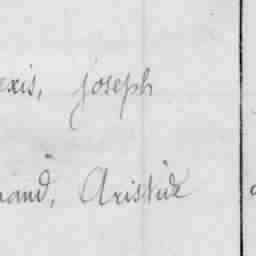 exis, Joseph
and, Aristide